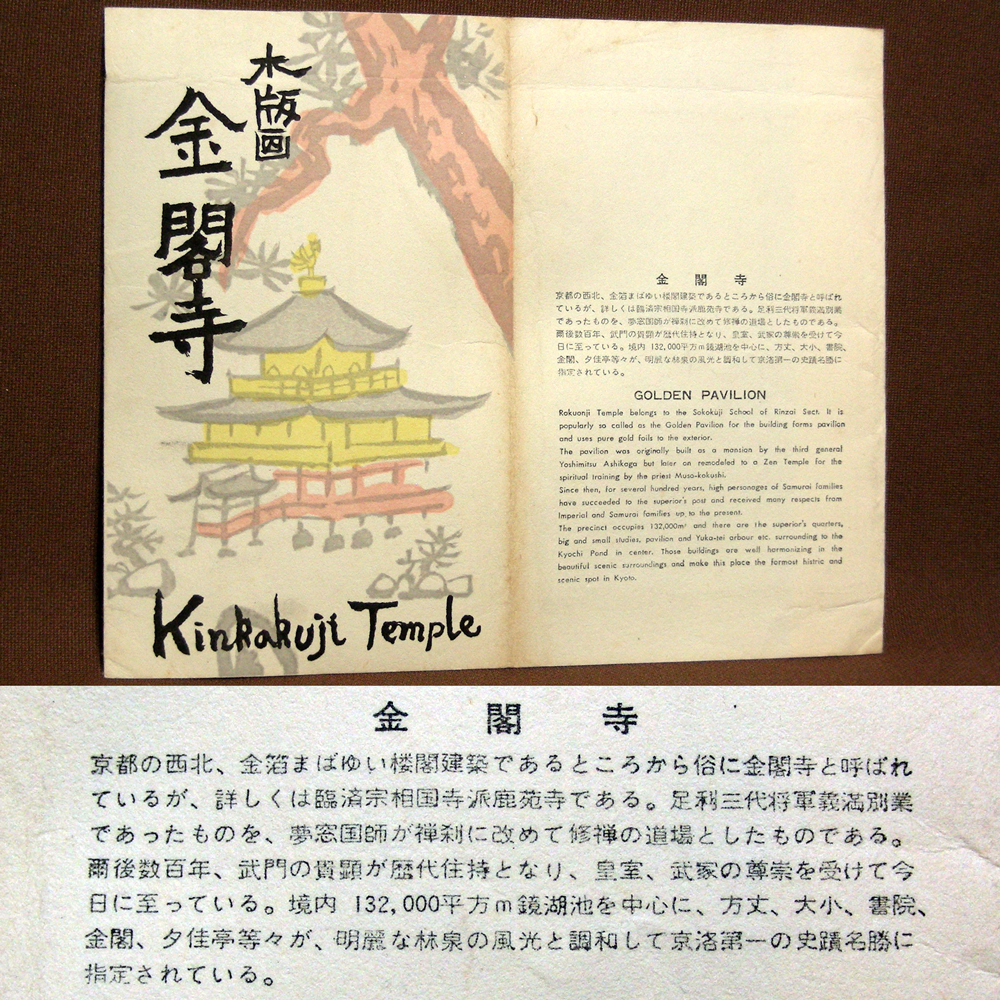 木版画
金閣寺
Kinkakuji Temple
金閣寺
京都の西北、金箔まばゆい楼閣建築であるところから俗に金閣寺と呼ばれ
ているが、詳しくは臨済宗相国寺派鹿苑寺である。足利三代将軍義満別業
であったものを、夢窓国師が禅刹に改めて修禅の道場としたものである。
爾後数百年、武門の貴顕が歴代住持となり、皇室、武家の尊崇を受けて今
日に至っている。境内 132,000平方m鏡湖池を中心に、方丈、大小、書院、
金閣、夕佳亭等々が、明麗な林泉の風光と調和して京洛第一の史蹟名勝に
指定されている。
GOLDEN PAVILION
Rokuonji Temple belongs to the Sokokuji School of Rinzai Sect. It is
popularly so called as the Golden Pavilion for the building forms pavilion
and uses pure gold foils to the exterior.
The pavilion was originally built as a mansion by the third general
Yoshimitsu Ashikaga but later on remodeled to a Zen Temple for the
spiritual training by the priest Muso-kokushi.
Since then, for several hundred years, high personages of Samurai families
have succeeded to the superior's post and received many respects from
Imperial and Samurai families up to the present.
The precinct occupies 132,000m² and there are the superior's quarters,
big and small studies, pavilion and Yuka-tei arbour etc. surrounding to the
Kyochi Pond in center. Those buildings are well harmonizing in the
beautiful scenic surroundings and make this place the formost histric and
scenic spot in Kyoto.
金閣寺
京都の西北、金箔まばゆい楼閣建築であるところから俗に金閣寺と呼ばれ
ているが、詳しくは臨済宗相国寺派鹿苑寺である。足利三代将軍義満別業
であったものを、夢窓国師が禅刹に改めて修禅の道場としたものである。
爾後数百年、武門の貴顕が歴代住持となり、皇室、武家の尊崇を受けて今
日に至っている。境内 132,000平方m鏡湖池を中心に、方丈、大小、書院、
金閣、夕佳亭等々が、明麗な林泉の風光と調和して京洛第一の史蹟名勝に
指定されている。